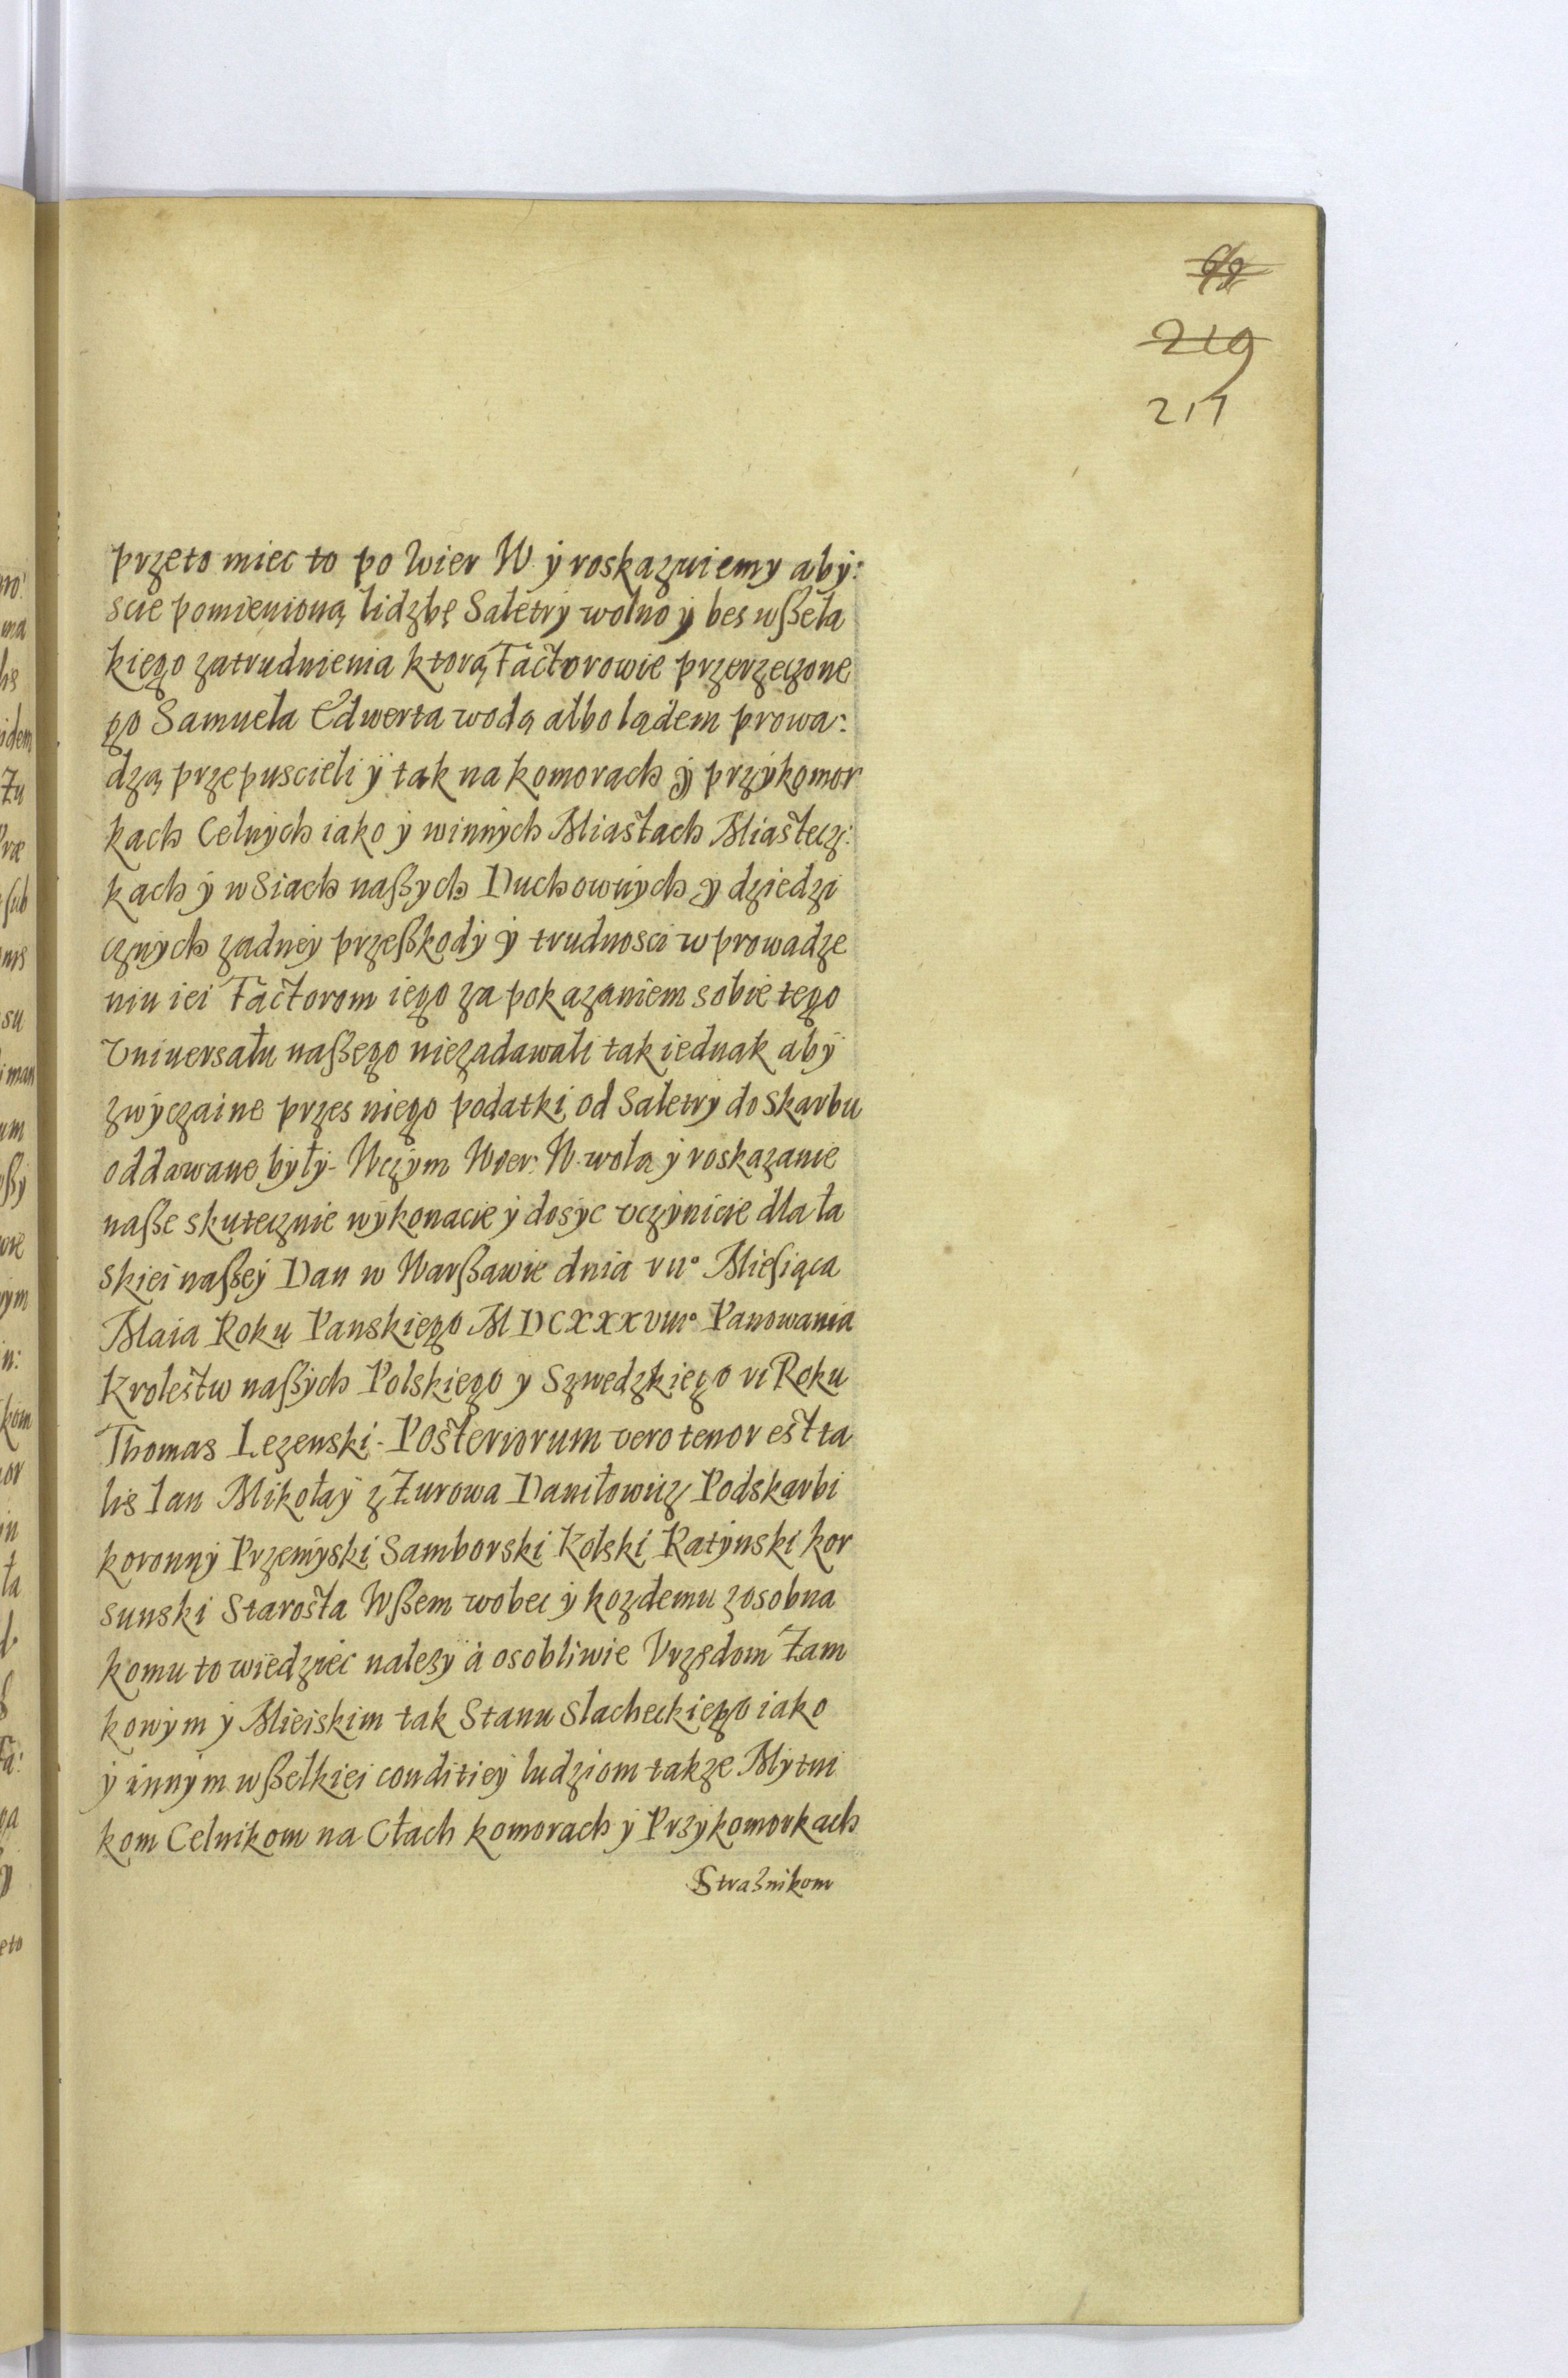 219
217
przeto miec to po Wier W. ÿ roskazuiemy abÿ:
scie pomienioną lidzbę Saletrÿ wolno ÿ bes wßela
kiego zatrudnienia ktorą Factorowie przerzeczone
go Samuela Edwerta wodą albo lądem prowa:
dzą przepuscieli ÿ tak na komorach ÿ przÿkomor
kach Celnÿch iako ÿ winnÿch Miastach Miastecz:
kach ÿ w Siach naßych Duchownÿch ÿ dziedzi
cznÿch zadneÿ przeßkodÿ ÿ trudnosci w prowadze
niu iei Factorom iego za pokazaniem sobie tego
Vniuersału naßego niezadawali tak iednak abÿ
zwÿczaine przes niego podatki od Saletrÿ do Skarbu
oddawane bÿłÿ. Wczÿm Wier: W. wolą ÿ roskazanie
naße skutecznie wÿkonacie ÿ dosÿc vczÿnicie dla ła
skiei naßeÿ Dan w Warßawie dnia vii° Miesiąca
Maia Roku Panskiego MDCXXXviii° Panowania
Krolestw naßÿch Polskiego y Szwedzkiego vi Roku
Thomas Lezenski. Posteriorum vero tenor est ta
lis Ian Mikołaÿ z Żurowa Daniłowicz Podskarbi
koronnÿ Przemÿski Samborski Kolski Ratÿnski kor
sunski Starosta Wßem wobec ÿ kozdemu zosobna
komu to wiedziec nalezÿ à osobliwie Vrzędom Zam
kowÿm ÿ Mieiskim tak Stanu Slacheckiego iako
ÿ innÿm wßelkiei conditieÿ ludziom takze Mÿtni
kom Celnikom na Cłach komorach ÿ Przÿkomorkach
Strażnikom